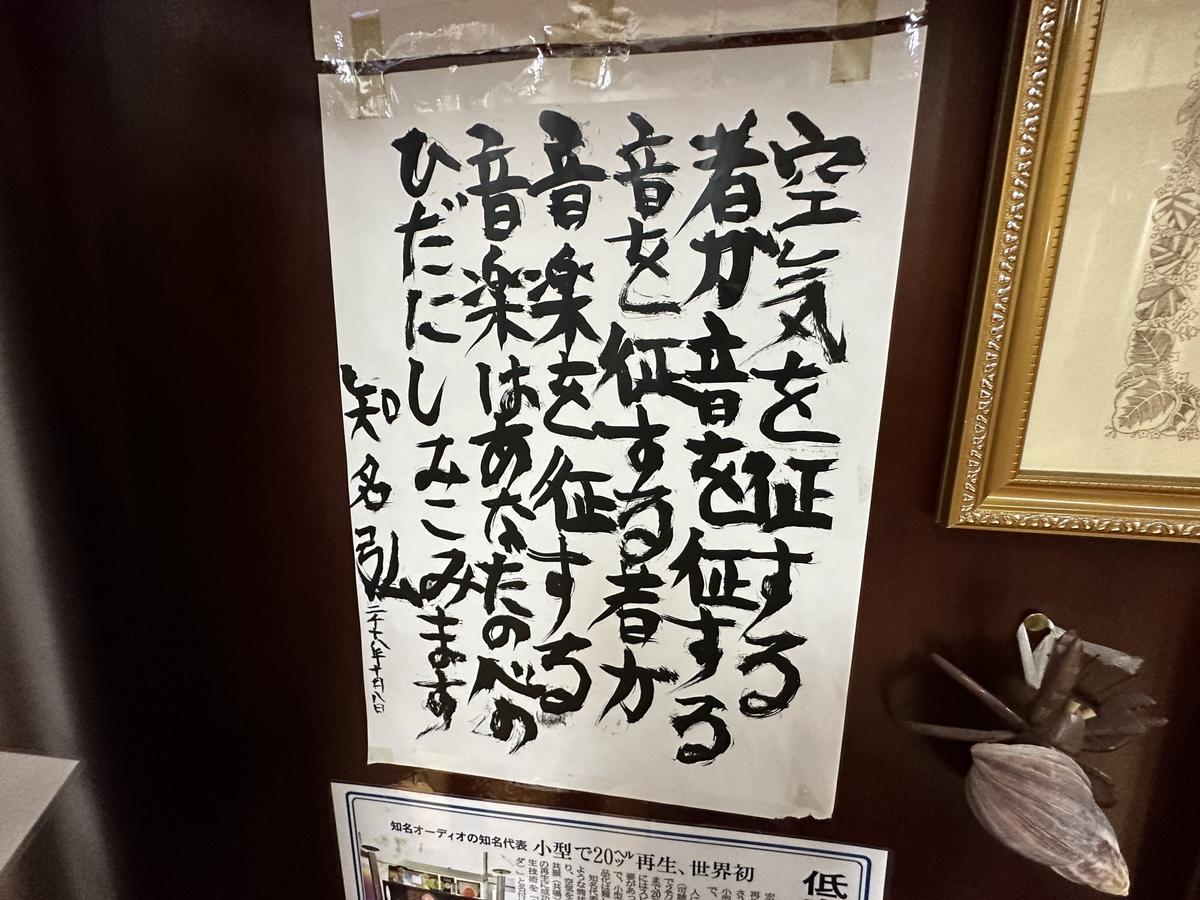 空気を征する
者が音を征する
音を征する者か
音楽を征する
音楽はあなたの心の
ひだにしみこみます
知名弘
知名オーディオの知名代表
小型で20㌹再生、世界初
低